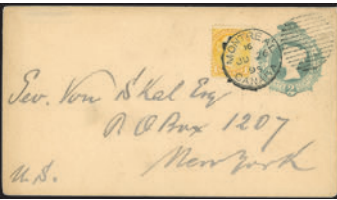 MONTREAL
CANADA
Geo. Von Skal Esq
P.O Box 1207
New York
U.S.